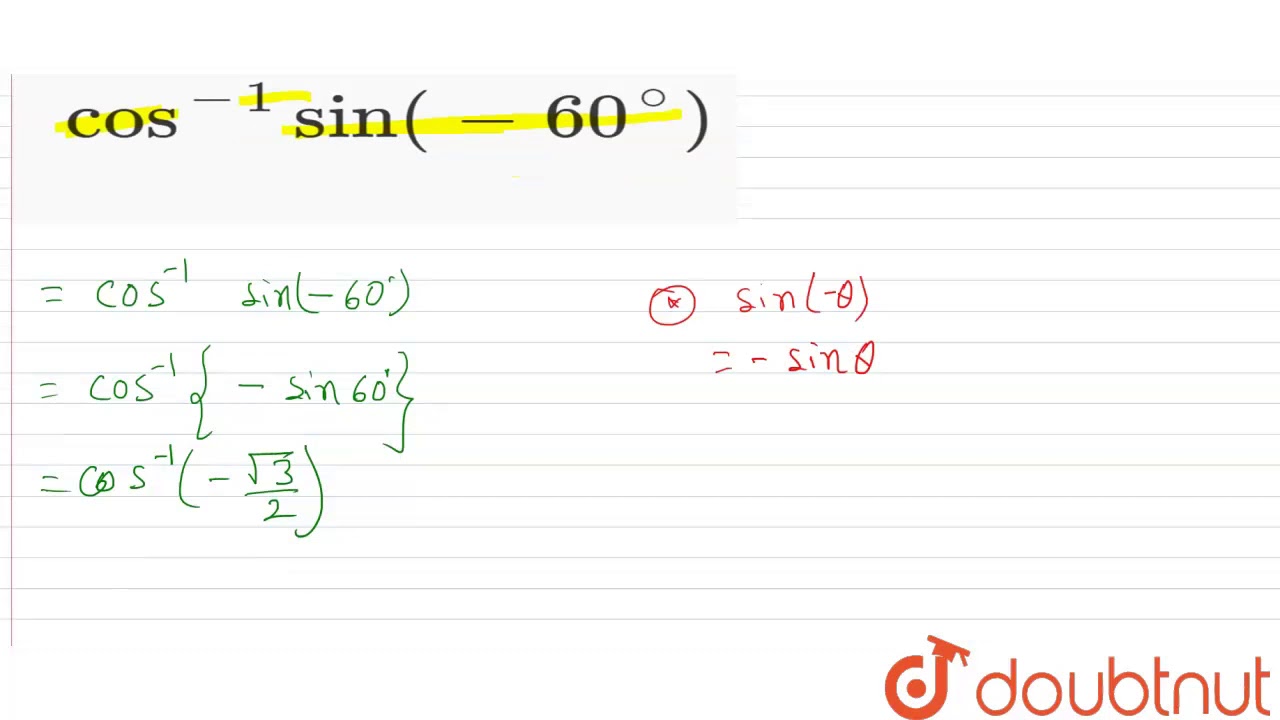 cos⁻¹ sin( − 60°)
= cos⁻¹ sin(−60°)
= cos⁻¹ { − sin 60° }
= cos⁻¹ (− √3/2)
⊛ sin(−θ)
= − sin θ
doubtnut